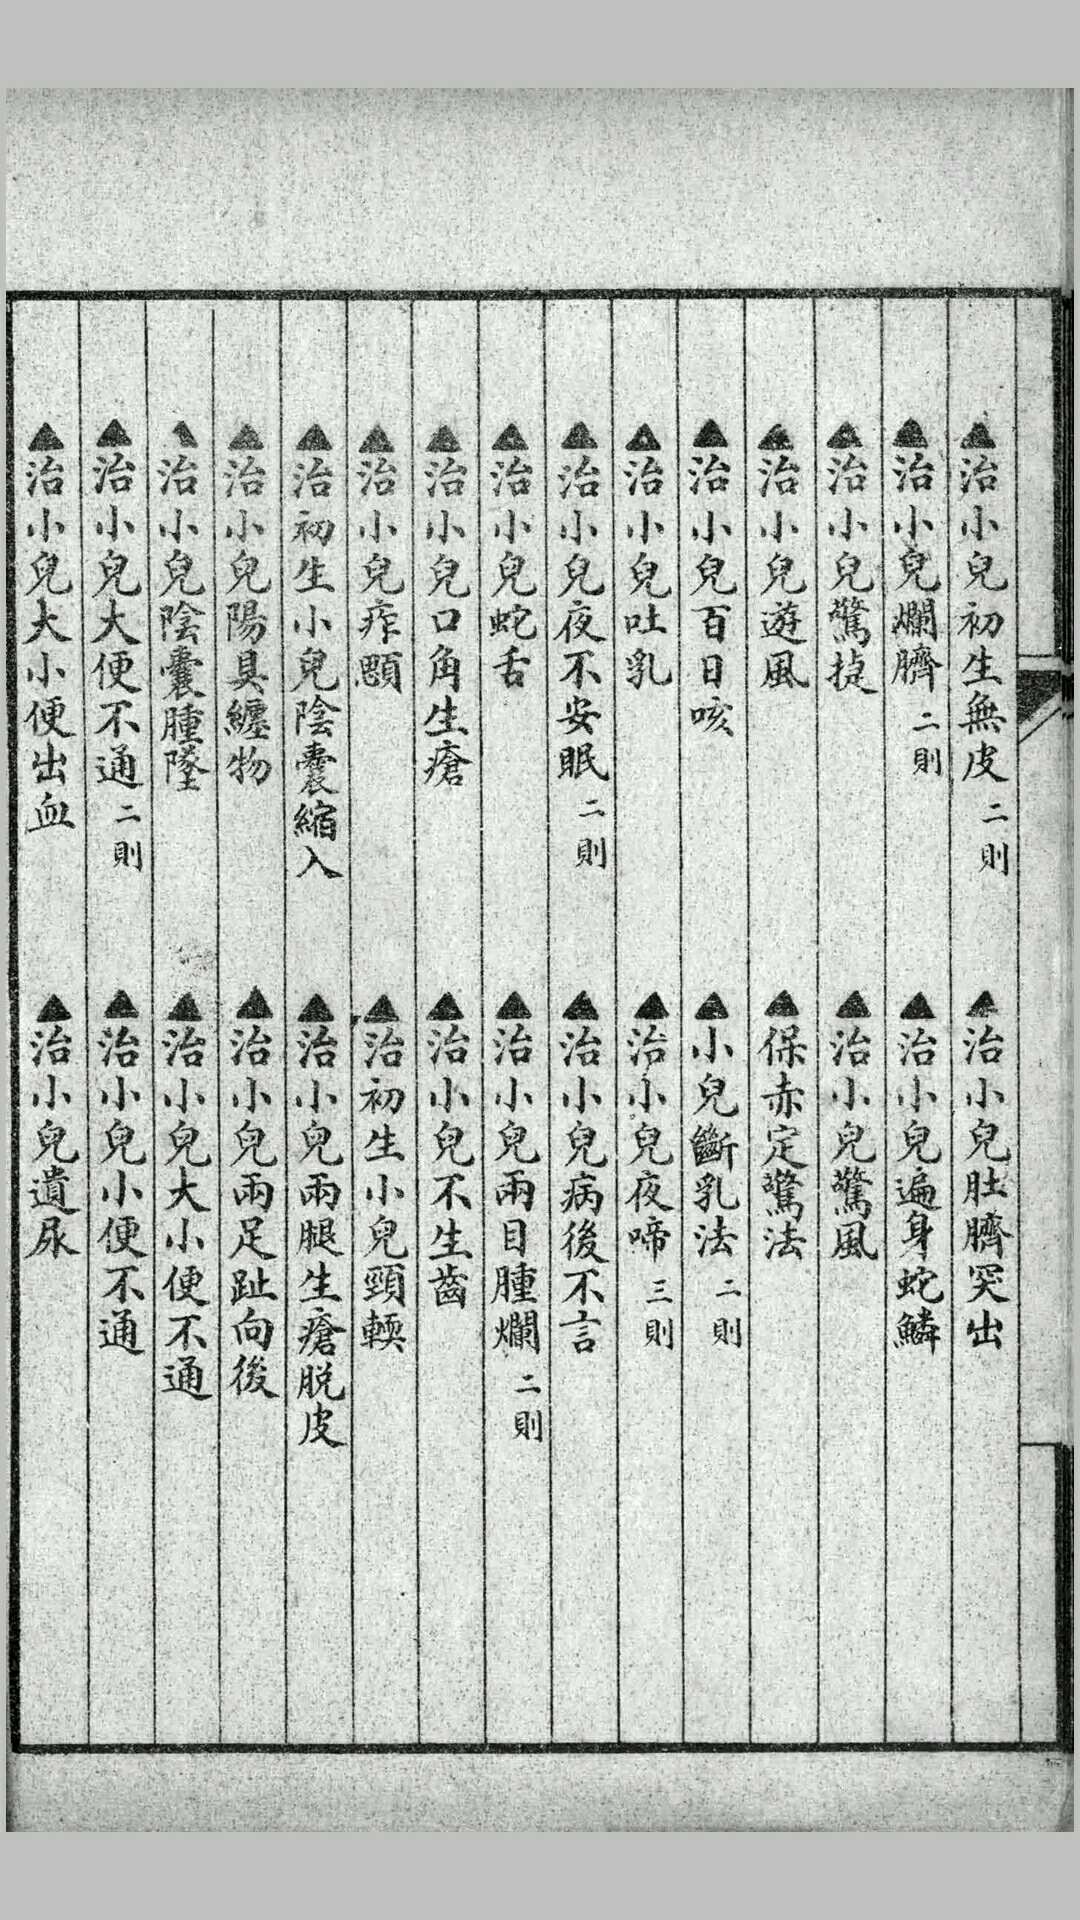 ▲治小兒初生無皮 二則
▲治小兒肚臍突出
▲治小兒爛臍 二則
▲治小兒遍身蛇鱗
▲治小兒驚㨗
▲治小兒驚風
▲治小兒遊風
▲保赤定驚法
▲治小兒百日咳
▲小兒斷乳法 二則
▲治小兒吐乳
▲治小兒夜啼 三則
▲治小兒夜不安眠 二則
▲治小兒病後不言
▲治小兒蛇舌
▲治小兒兩目腫爛 二則
▲治小兒口角生瘡
▲治小兒不生齒
▲治小兒痄顋
▲治初生小兒頸輭
▲治初生小兒陰囊縮入
▲治小兒兩腿生瘡脫皮
▲治小兒陽具纏物
▲治小兒兩足趾向後
▲治小兒陰囊腫墜
▲治小兒大小便不通
▲治小兒大便不通 二則
▲治小兒小便不通
▲治小兒大小便出血
▲治小兒遺尿